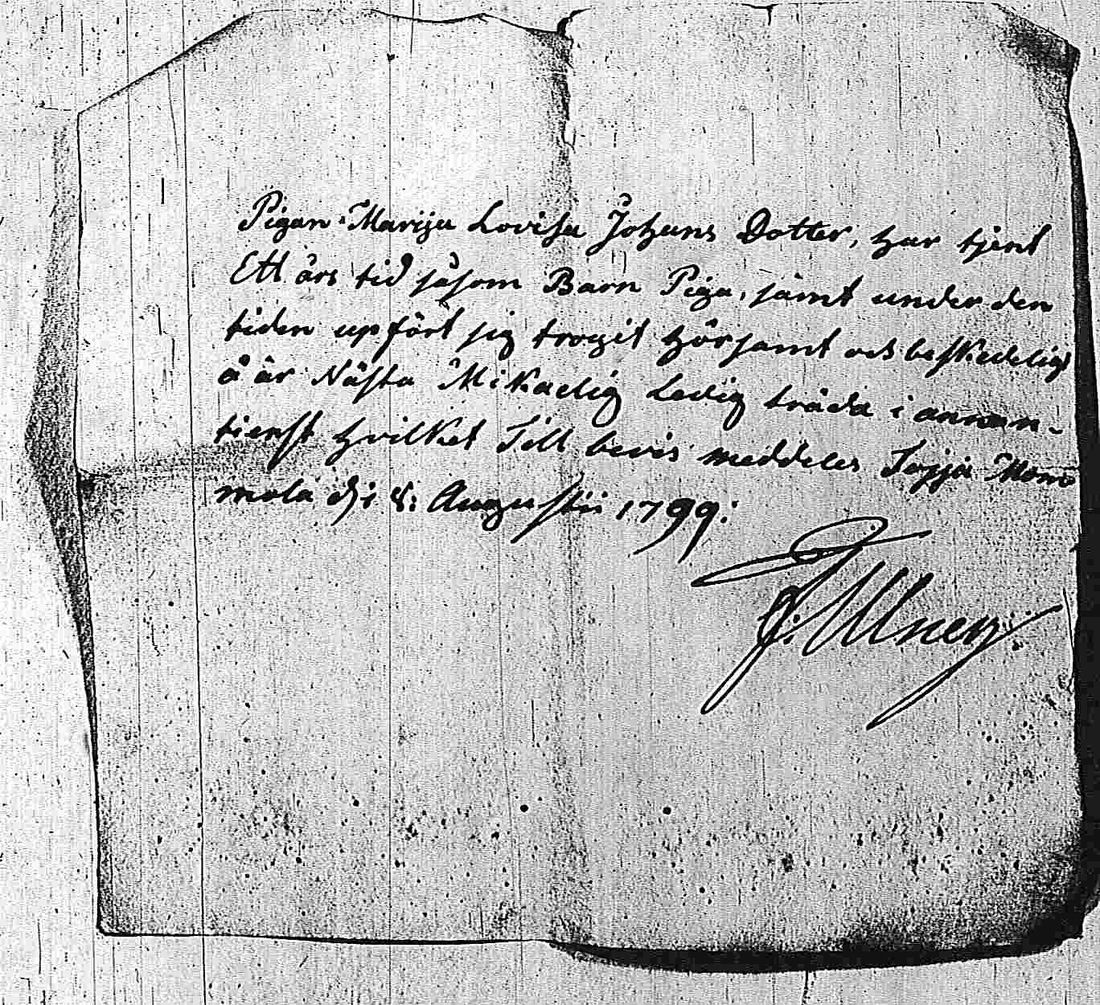 Pigan Marija Lovisa Johans Dotter, har tjent
Ett års tid såsom Barn Piga, jämt under den
tiden upfört sig trogit hörsamt och beskedeligt
å är Nästa Mikaelig Ledig träda i annan-
tienst hvilket Till bevis meddeles Sojja Mom
mola d: 8: Augustii 1799: